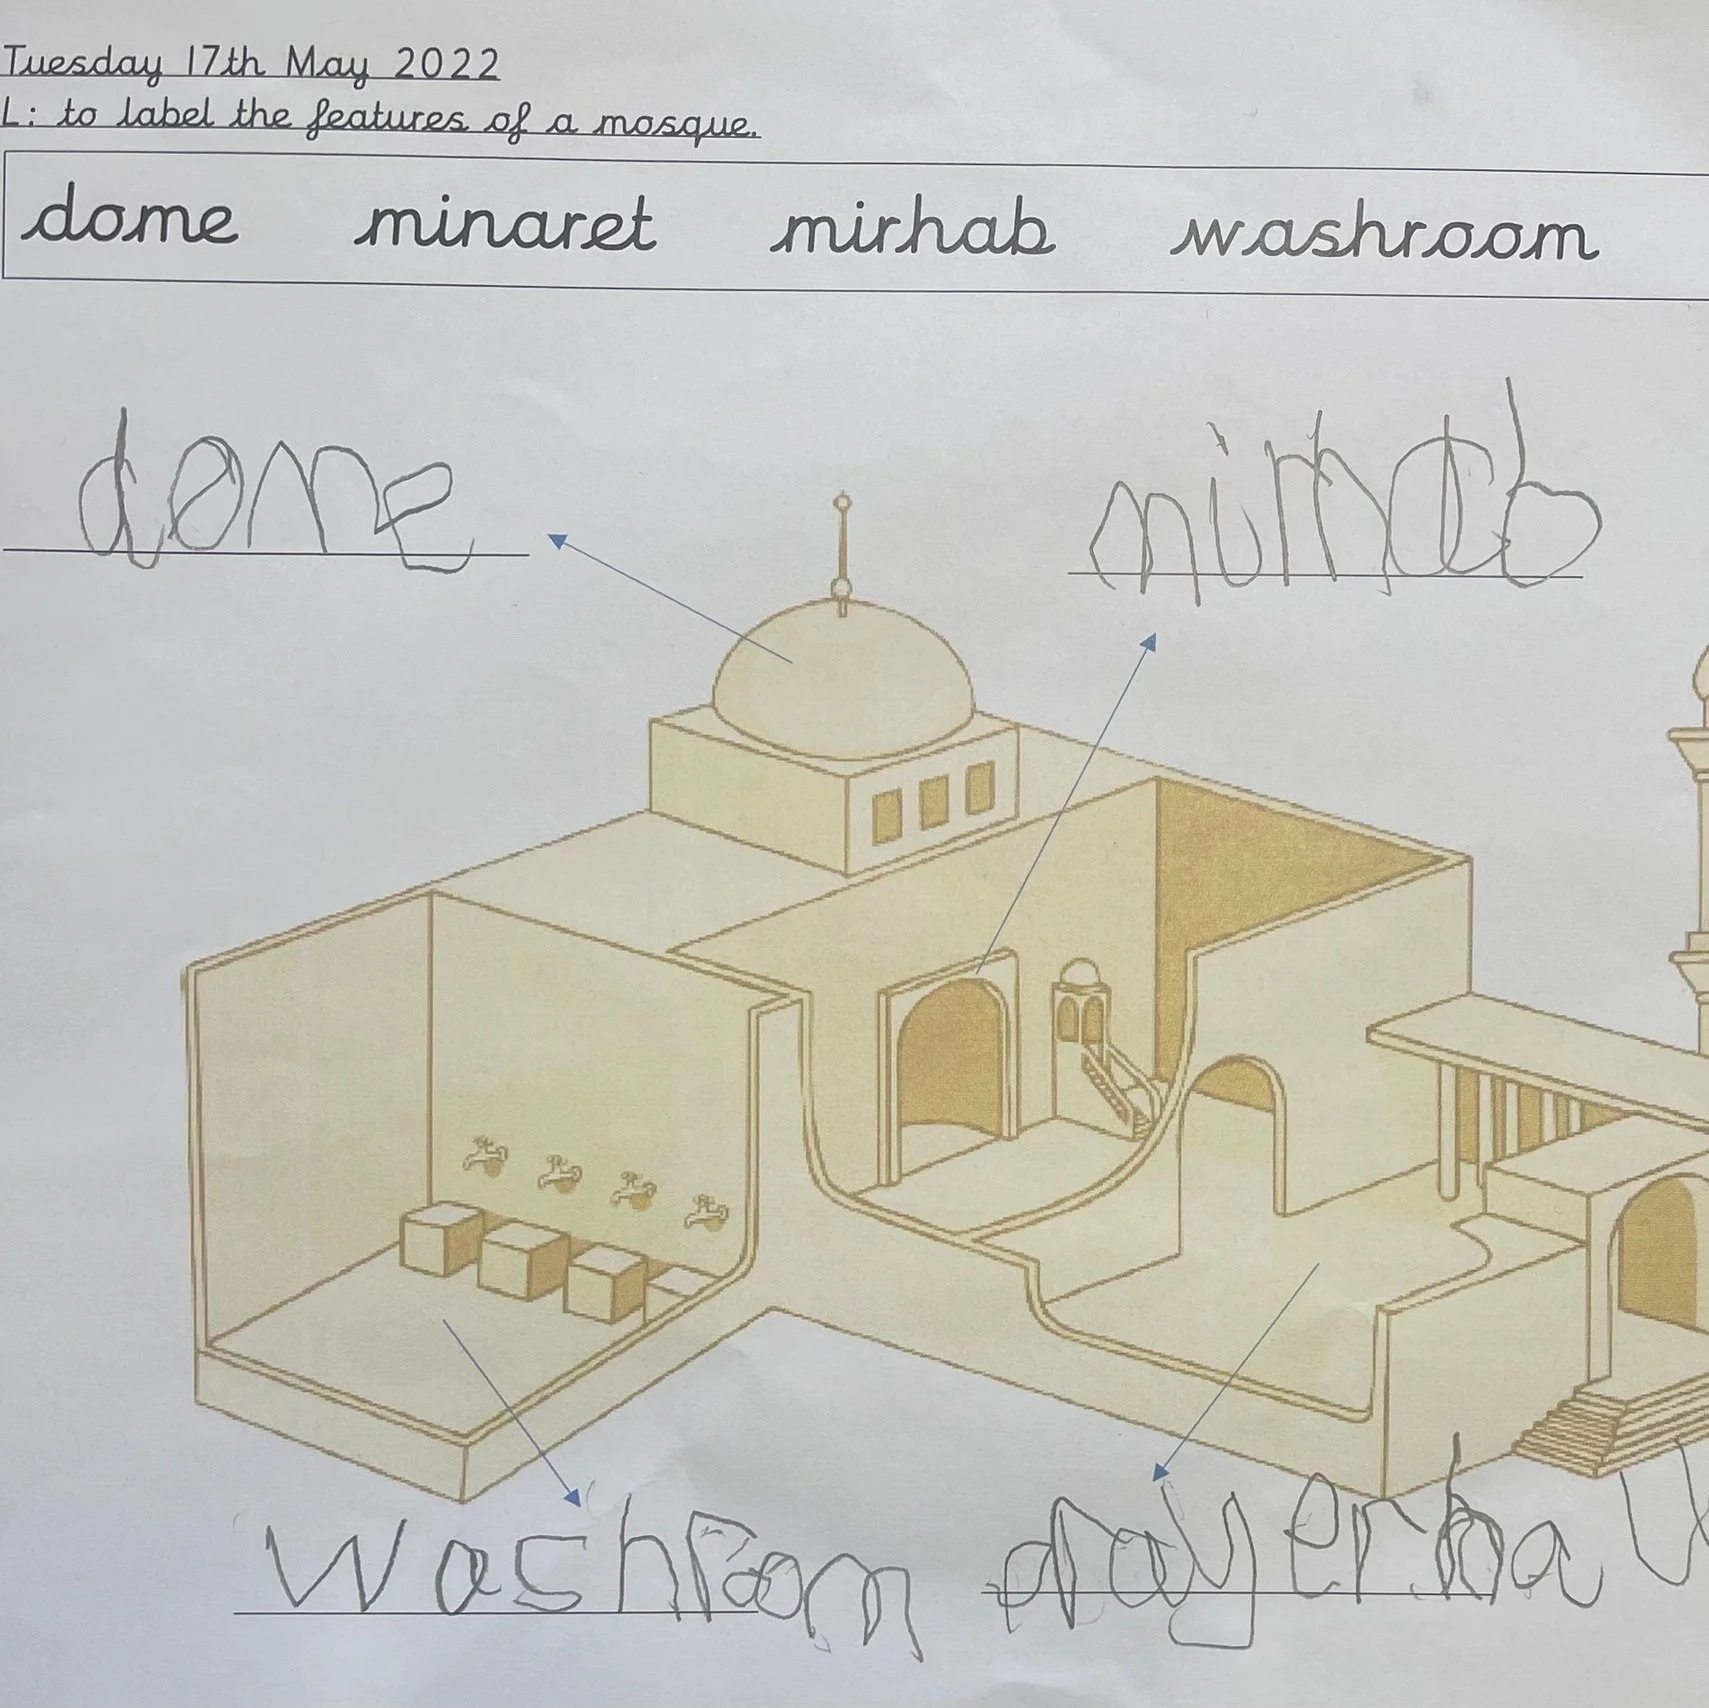 Tuesday 17th May 2022
L: to label the features of a mosque.
dome minaret mirhab washroom
dome
mirhab
washroom